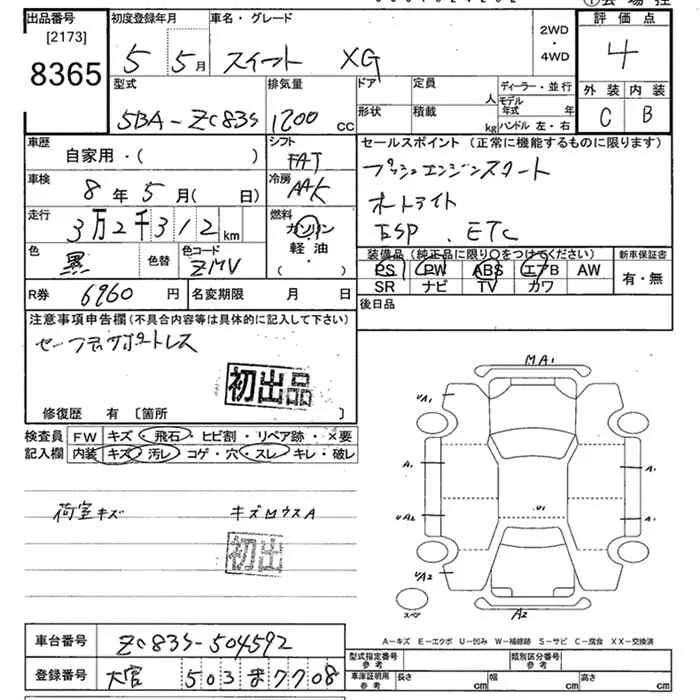 出品番号
[2173]
8365
初度登録年月
5 5月
車名・グレード
スイフト XG
2WD
・
4WD
評価点
4
外装 内装
C B
型式
5BA-ZC83S
排気量
1200 CC
ドア
形状
定員 人
積載 kg
ディーラー・並行
モデル年式 年
ハンドル 左・右
車歴
自家用・( )
シフト
FAT
セールスポイント (正常に機能するものに限ります)
プッシュエンジンスタート
オートライト
ESP . ETC
車検
8年 5月( 日)
冷房
AAC
走行
3万2千312 km
燃料
ガソリン
軽油
・
色
黒
色替
色コード
ZMV
装備品 (純正品に限り○をつけてください)
PS PW ABS エアB AW
SR ナビ TV カワ
新車保証書
有・無
R券 6960 円
名変期限 月 日
後日品
注意事項申告欄 (不具合内容等は具体的に記入して下さい)
セーフティサポートレス
初出品
修復歴 有 〔箇所 〕
検査員
記入欄
FW キズ・飛石・ヒビ割・リペア跡・×要
内装 キズ・汚レ・コゲ・穴・スレ・キレ・破レ
荷室キズ キズMウスA
初出品
MA1
UA1
A1
UA2
UA2
U1
A1
A1
A2
スペア
A-キズ E-エクボ U-凹み W-補修跡 S-サビ C-腐食 XX-交換済
車台番号 ZC83S-504592
登録番号 大宮 503 ま 7708
型式指定番号
参考
類別区分番号
参考
車庫証明用
参考
長さ cm
幅 cm
高さ cm